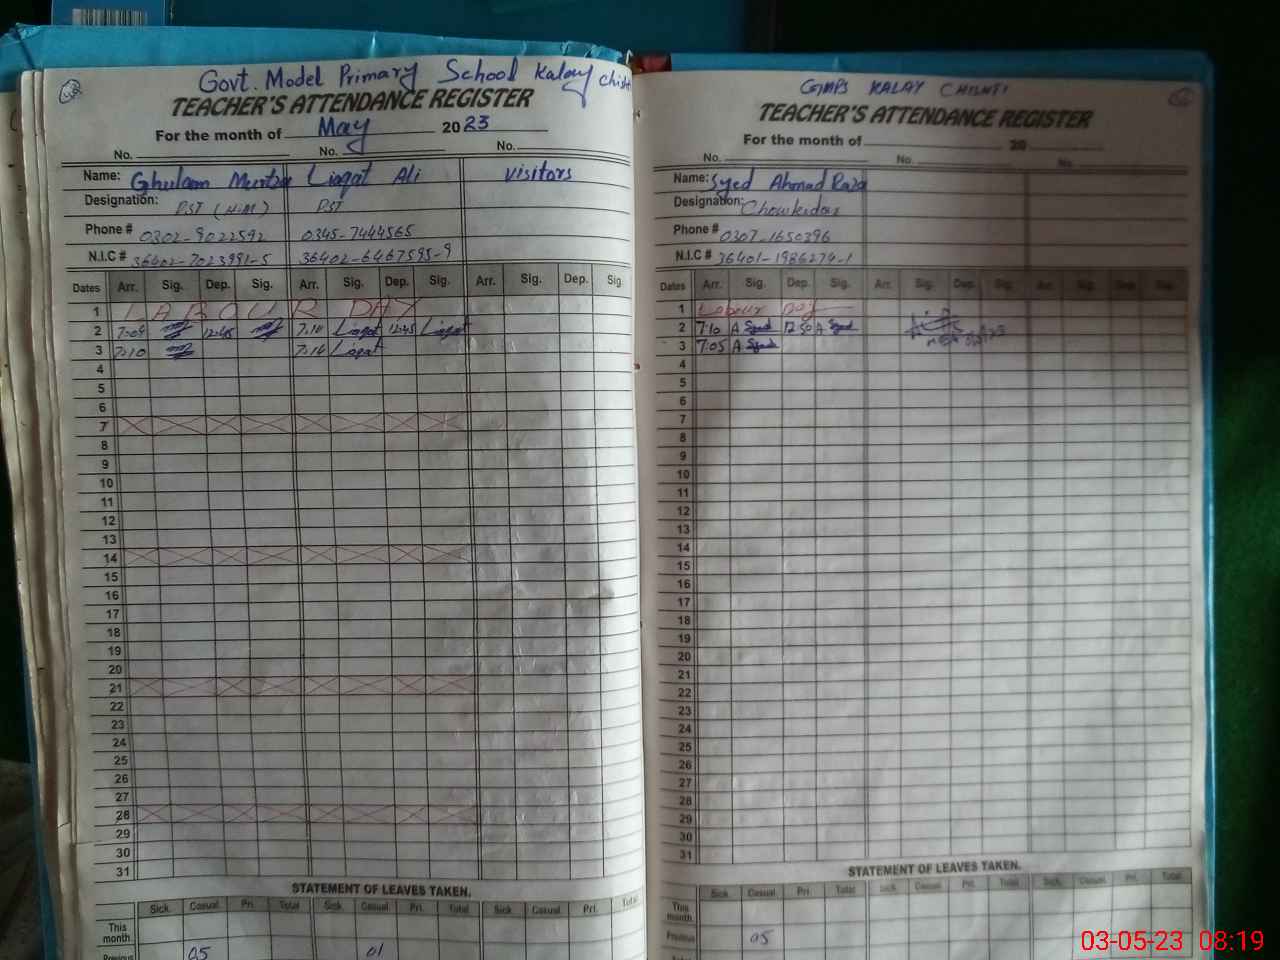 Govt. Model Primary School Kalay Chishti
TEACHER'S ATTENDANCE REGISTER
For the month of May 2023
No. No. No.
Name: Ghulam Murtza Liaqat Ali Visitors
Designation: PST (H.M) PST
Phone # 0302-9022592 0345-7444565
N.I.C # 36402-7023991-5 36402-6467595-9
Dates Arr. Sig. Dep. Sig. Arr. Sig. Dep. Sig. Arr. Sig. Dep. Sig.
1 LABOUR DAY
2 7:09 12:45 7:10 Liaqat 12:45 Liaqat
3 7:10 7:16 Liaqat
4
5
6
7
8
9
10
11
12
13
14
15
16
17
18
19
20
21
22
23
24
25
26
27
28
29
30
31
STATEMENT OF LEAVES TAKEN.
Sick. Casual. Pri. Total Sick. Casual. Pri. Total Sick. Casual. Pri. Total
This month
Previous 05 01
GMPS KALAY CHISHTI
TEACHER'S ATTENDANCE REGISTER
For the month of 20
No. No. No.
Name: Syed Ahmad Raza
Designation: Chowkidar
Phone # 0307-1650396
N.I.C # 36401-1986274-1
Dates Arr. Sig. Dep. Sig. Arr. Sig. Dep. Sig. Arr. Sig. Dep. Sig.
1 Labour Day
2 7:10 A Syed 12:50 A Syed
3 7:05 A Syed
4
5
6
7
8
9
10
11
12
13
14
15
16
17
18
19
20
21
22
23
24
25
26
27
28
29
30
31
STATEMENT OF LEAVES TAKEN.
Sick Casual. Pri. Total Sick. Casual. Pri. Total Sick. Casual. Pri. Total
This month
Previous 05
03-05-23 08:19